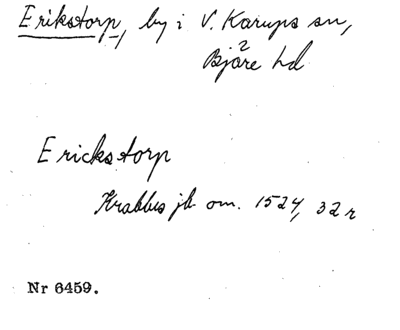 Erikstorp, by i V. Karups sn,
Bjäre hd
Erickstorp
Krabbes jb om. 1524, 32 r
Nr 6459.